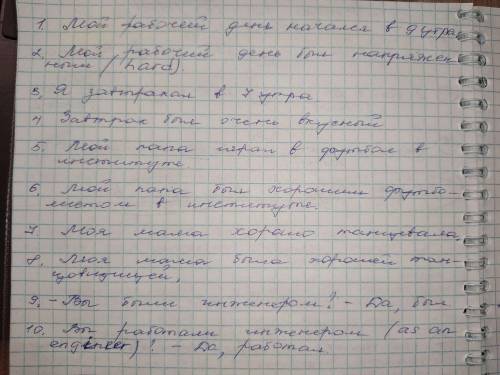 1. Мой рабочий день начался в 9 утра
2. Мой рабочий день был напряжен
ным (hard).
3. Я завтракал в 7 утра
4 Завтрак был очень вкусный
5. Мой папа играл в футбол в
институте
6. Мой папа был хорошим футбо-
листом в институте.
7. Моя мама хорошо танцевала.
8. Моя мама была хорошей тан-
цовщицей.
9. - Вы были инженером? - Да, был
10. Вы работали инженером (as an
engineer)? - Да, работал.